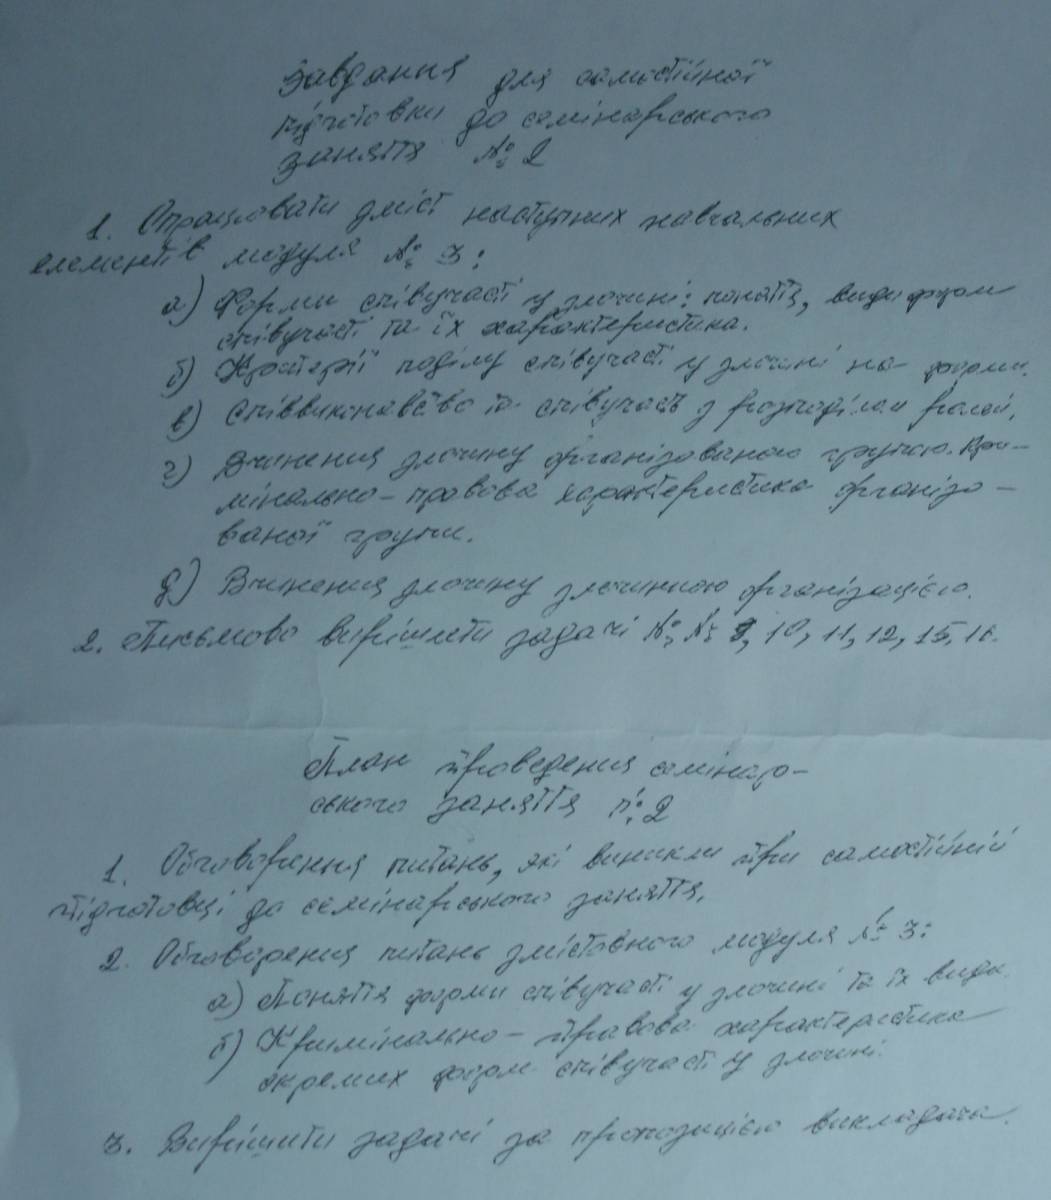 Завдання для самостійної
підготовки до семінарського
заняття № 2
1. Опрацювати зміст наступних навчальних
елементів модуля № 3:
а) Форми співучасті у злочині: поняття, види форм
співучасті та їх характеристика.
б) Критерії поділу співучасті у злочині на форми.
в) Співвиконавство та співучасть з розподілом ролей.
г) Вчинення злочину організованою групою. Кри-
мінально-правова характеристика організо-
ваної групи.
д) Вчинення злочину злочинною організацією.
2. Письмово вирішити задачі №№ 10, 11, 12, 15, 16.
План проведення семінар-
ського заняття № 2
1. Обговорення питань, які виникли при самостійній
підготовці до семінарського заняття.
2. Обговорення питань змістовного модуля № 3:
а) Поняття форми співучасті у злочині та їх види.
б) Кримінально-правова характеристика
окремих форм співучасті у злочині.
3. Вирішити задачі за пропозицією викладача.